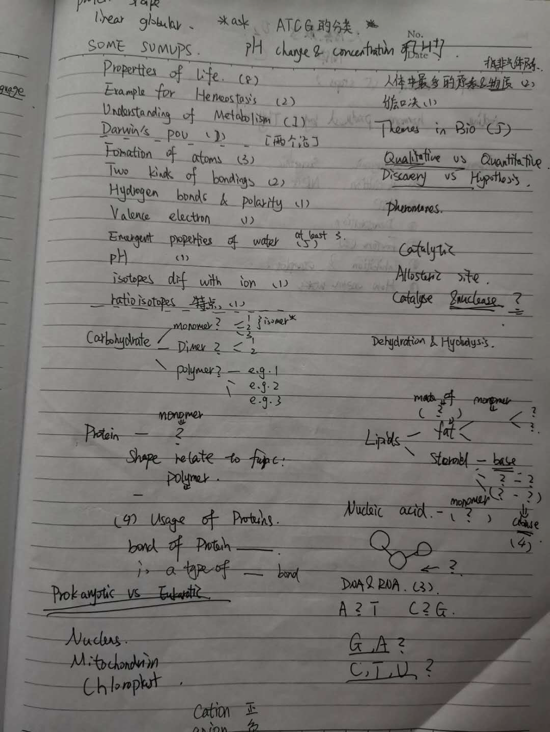 linear globular. *ask ATCG的分类. *
No.
Date
SOME SUMUPS. pH change & concentration of [H+]
Properties of Life. (8)
Example for Hemeostasis (2)
Understanding of Metabolism (1)
Darwin's pov (1) [两个洽]
Fomation of atoms (3)
Two kinds of bondings (2)
Hydrogen bonds & polarity (1)
Valence electron (1)
Emergent properties of water at least 3 (5)
pH (1)
isotopes dif with ion (1)
ratioisotopes 特点. (1)
Carbohydrate
monomer? 1 2 3 } isomer*
Dimer? 1 2
polymer? e.g.1
e.g.2
e.g.3
Protein — monomer ?
Shape relate to func:
polymer.
(4) Usage of Proteins.
bond of Protein ____
is a type of __ bond
Prokaryotic vs Eukariotic
Nucleus.
Mitochondrin
Chloroplast.
Cation 正
anion 负
人体中最多的元素&物质 (2)
口诀 (1)
Themes in Bio (5)
Qualitative vs Quantitative
Discovery vs Hypothesis.
Pheromones.
Catalytic
Allosteric site.
Catalyse Enuclease ?
Dehydration & Hydolysis.
Lipids
made of (?) monomer
fat ? ?
Steroid — base
? — ?
(? — ?)
Nucleic acid. — monomer (?)
(4)
← ?
DNA & RNA. (3).
A ? T C ? G.
G, A ?
C, T, U ?